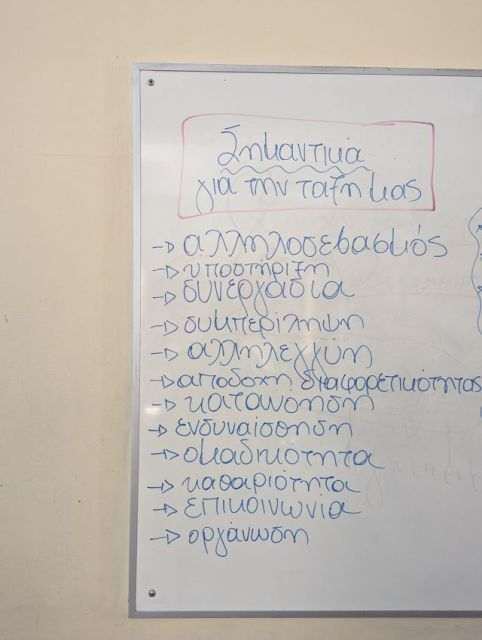 Σημαντικά
για την τάξη μας
→ αλληλοσεβασμός
→ υποστήριξη
→ συνεργασία
→ συμπερίληψη
→ αλληλεγγύη
→ αποδοχή διαφορετικότητας
→ κατανόηση
→ ενσυναίσθηση
→ ομαδικότητα
→ καθαριότητα
→ επικοινωνία
→ οργάνωση